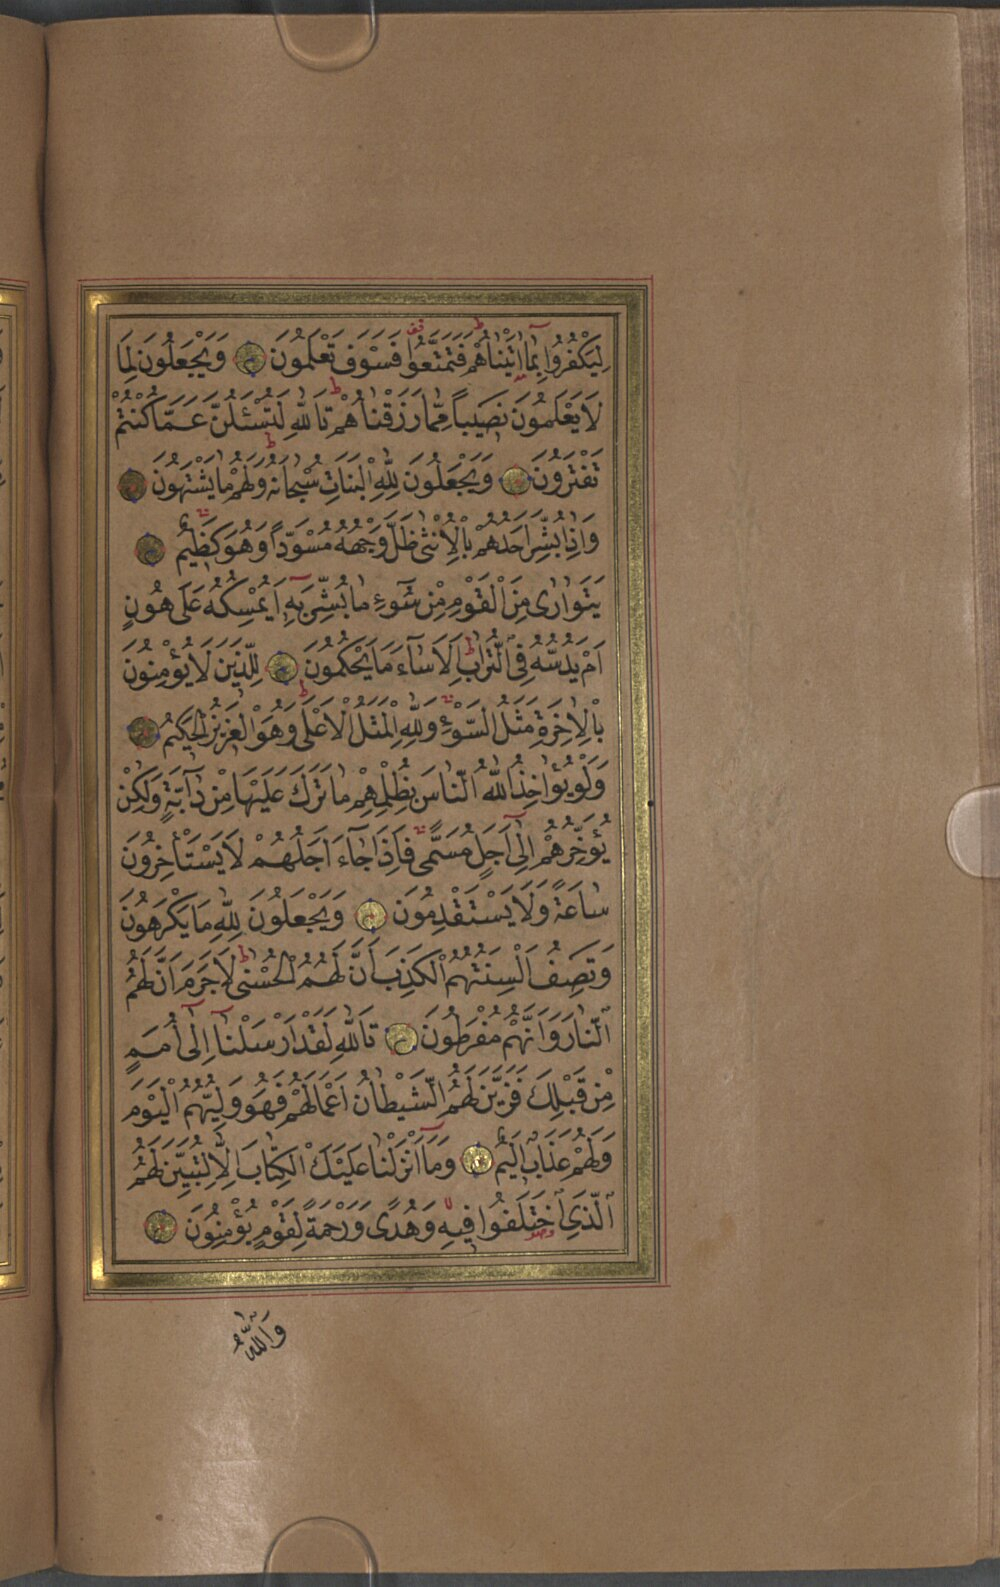 لِيَكْفُرُوا بِمَٓا اٰتَيْنَاهُمْ فَتَمَتَّعُوا فَسَوْفَ تَعْلَمُونَ وَيَجْعَلُونَ لِمَا
لَا يَعْلَمُونَ نَصٖيبًا مِمَّا رَزَقْنَاهُمْ تَاللّٰهِ لَتُسْـَٔلُنَّ عَمَّا كُنْتُمْ
تَفْتَرُونَ وَيَجْعَلُونَ لِلّٰهِ الْبَنَاتِ سُبْحَانَهُ وَلَهُمْ مَا يَشْتَهُونَ
وَاِذَا بُشِّرَ اَحَدُهُمْ بِالْاُنْثٰى ظَلَّ وَجْهُهُ مُسْوَدًّا وَهُوَ كَظٖيمٌ
يَتَوَارٰى مِنَ الْقَوْمِ مِنْ سُٓوءِ مَا بُشِّرَ بِهٖ اَيُمْسِكُهُ عَلٰى هُونٍ
اَمْ يَدُسُّهُ فِى التُّرَابِ اَلَا سَٓاءَ مَا يَحْكُمُونَ لِلَّذٖينَ لَا يُؤْمِنُونَ
بِالْاٰخِرَةِ مَثَلُ السَّوْءِ وَلِلّٰهِ الْمَثَلُ الْاَعْلٰى وَهُوَ الْعَزٖيزُ الْحَكٖيمُ
وَلَوْ يُؤَاخِذُ اللّٰهُ النَّاسَ بِظُلْمِهِمْ مَا تَرَكَ عَلَيْهَا مِنْ دَٓابَّةٍ وَلٰكِنْ
يُؤَخِّرُهُمْ اِلٰٓى اَجَلٍ مُسَمًّى فَاِذَا جَٓاءَ اَجَلُهُمْ لَا يَسْتَأْخِرُونَ
سَاعَةً وَلَا يَسْتَقْدِمُونَ وَيَجْعَلُونَ لِلّٰهِ مَا يَكْرَهُونَ
وَتَصِفُ اَلْسِنَتُهُمُ الْكَذِبَ اَنَّ لَهُمُ الْحُسْنٰى لَا جَرَمَ اَنَّ لَهُمُ
النَّارَ وَاَنَّهُمْ مُفْرَطُونَ تَاللّٰهِ لَقَدْ اَرْسَلْنَٓا اِلٰٓى اُمَمٍ
مِنْ قَبْلِكَ فَزَيَّنَ لَهُمُ الشَّيْطَانُ اَعْمَالَهُمْ فَهُوَ وَلِيُّهُمُ الْيَوْمَ
وَلَهُمْ عَذَابٌ اَلٖيمٌ وَمَٓا اَنْزَلْنَا عَلَيْكَ الْكِتَابَ اِلَّا لِتُبَيِّنَ لَهُمُ
الَّذِى اخْتَلَفُوا فٖيهِ وَهُدًى وَرَحْمَةً لِقَوْمٍ يُؤْمِنُونَ
وَاللّٰهُ